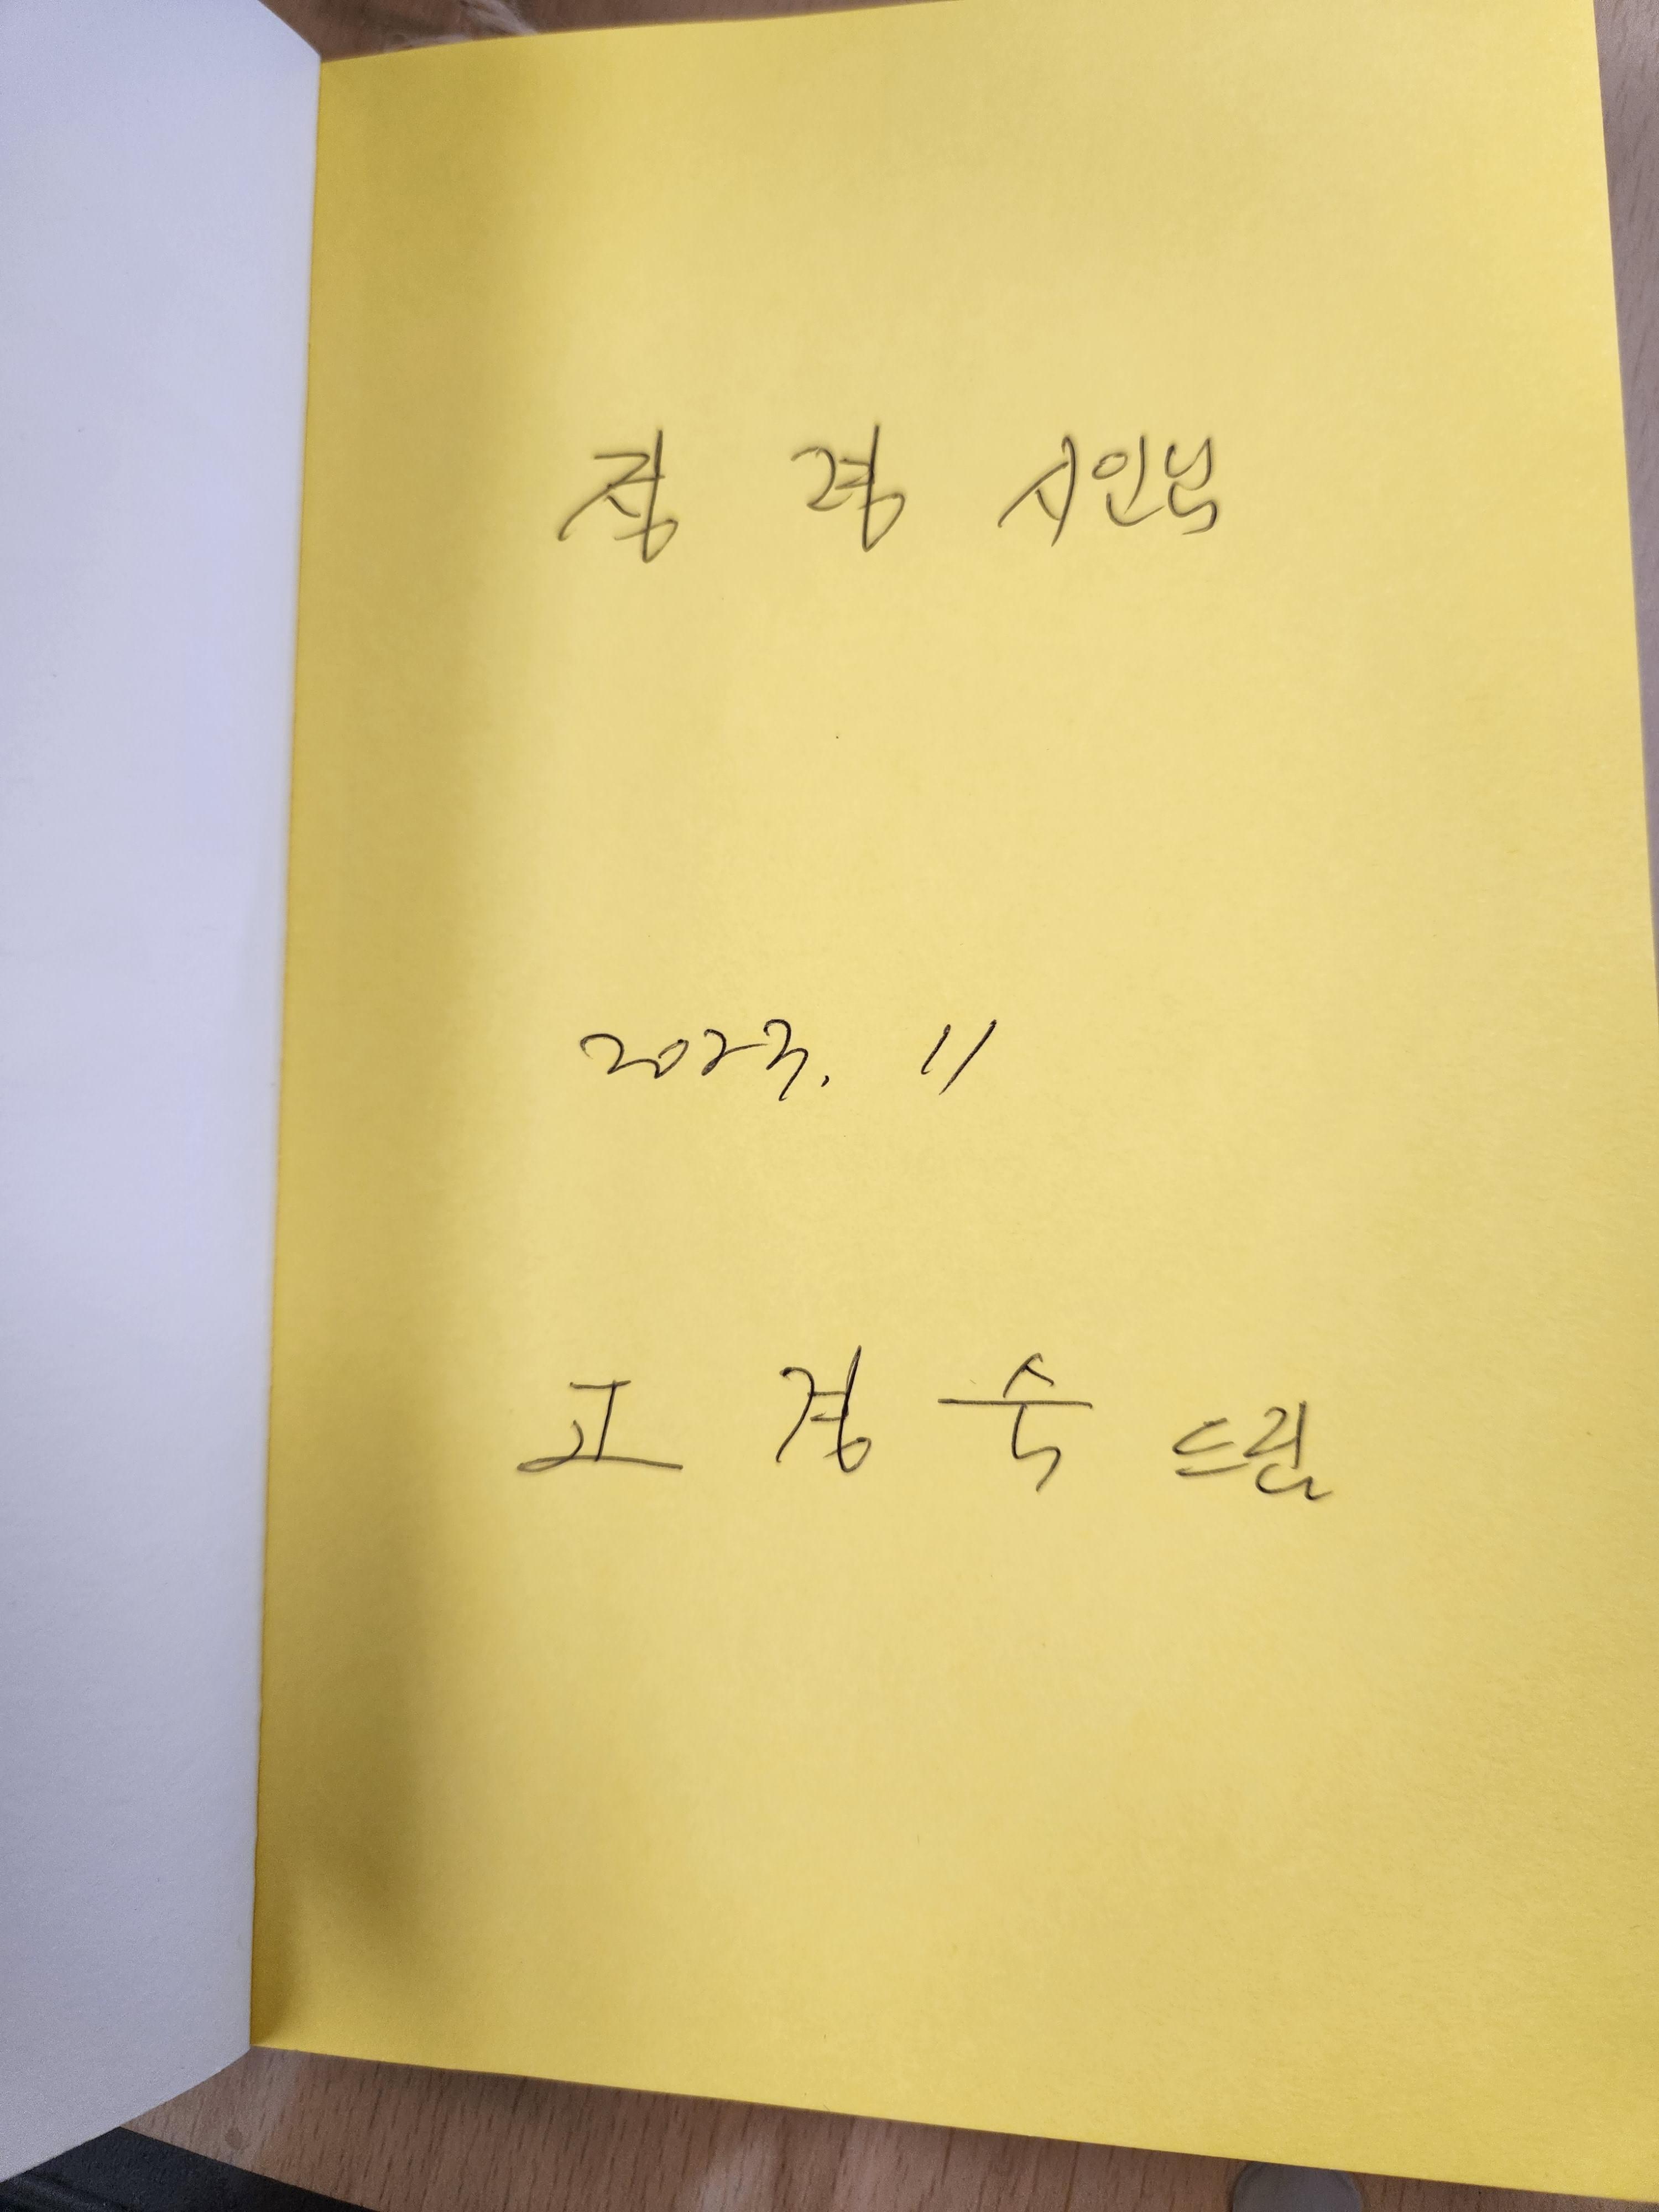 정 겸 시인님
2023. 11
고 경 숙 드림